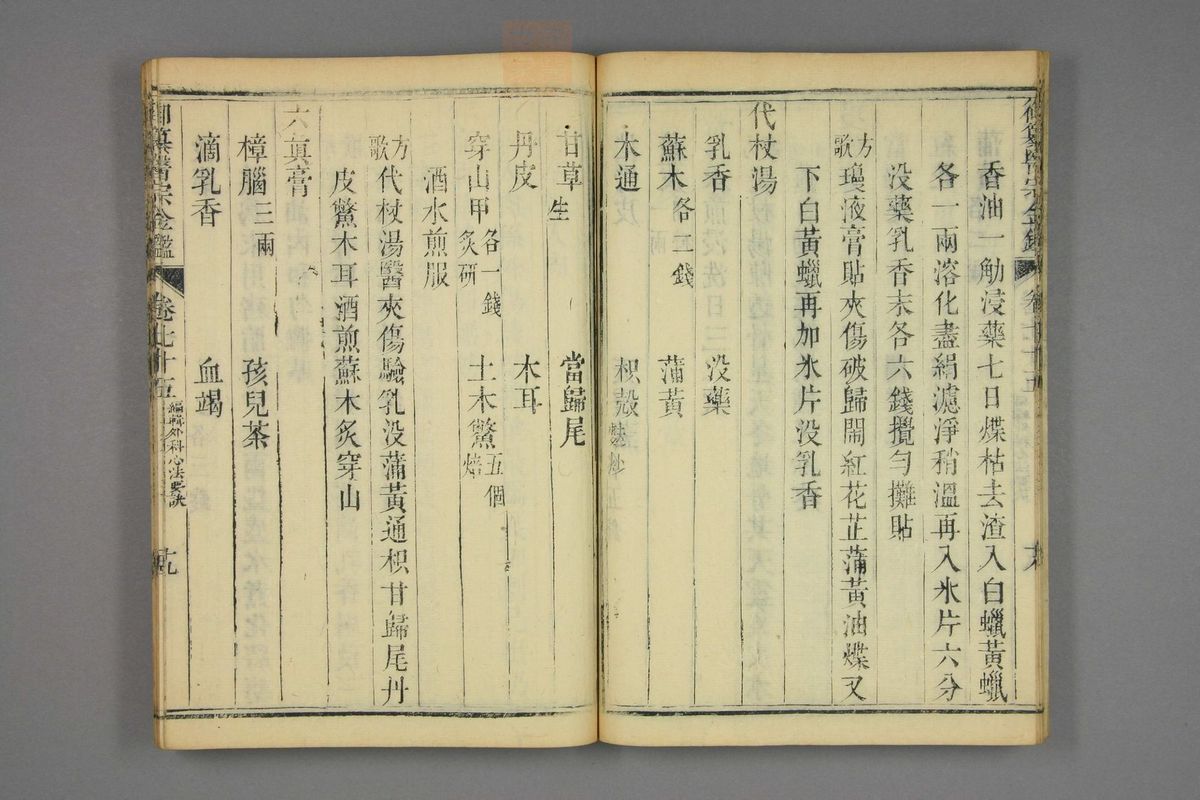 香油一觔浸藥七日煠枯去渣入白蠟黃蠟
各一兩溶化盡絹濾淨稍溫再入氷片六分
没藥乳香末各六錢攪勻攤貼
方歌
瓊液膏貼夾傷破歸閙紅花芷蒲黃油煠又
下白黃蠟再加氷片没乳香
代杖湯
乳香
没藥
蘇木各二錢
蒲黃
木通
枳殼麩炒
甘草生
當歸尾
丹皮
木耳
穿山甲炙研各一錢
土木鱉焙五個
酒水煎服
方歌
代杖湯醫夾傷驗乳没蒲黃通枳甘歸尾丹
皮鱉木耳酒煎蘇木炙穿山
六眞膏
樟腦三兩
孩兒茶
滴乳香
血竭
御纂醫宗金鑑
卷七十五
編輯外科心法要訣